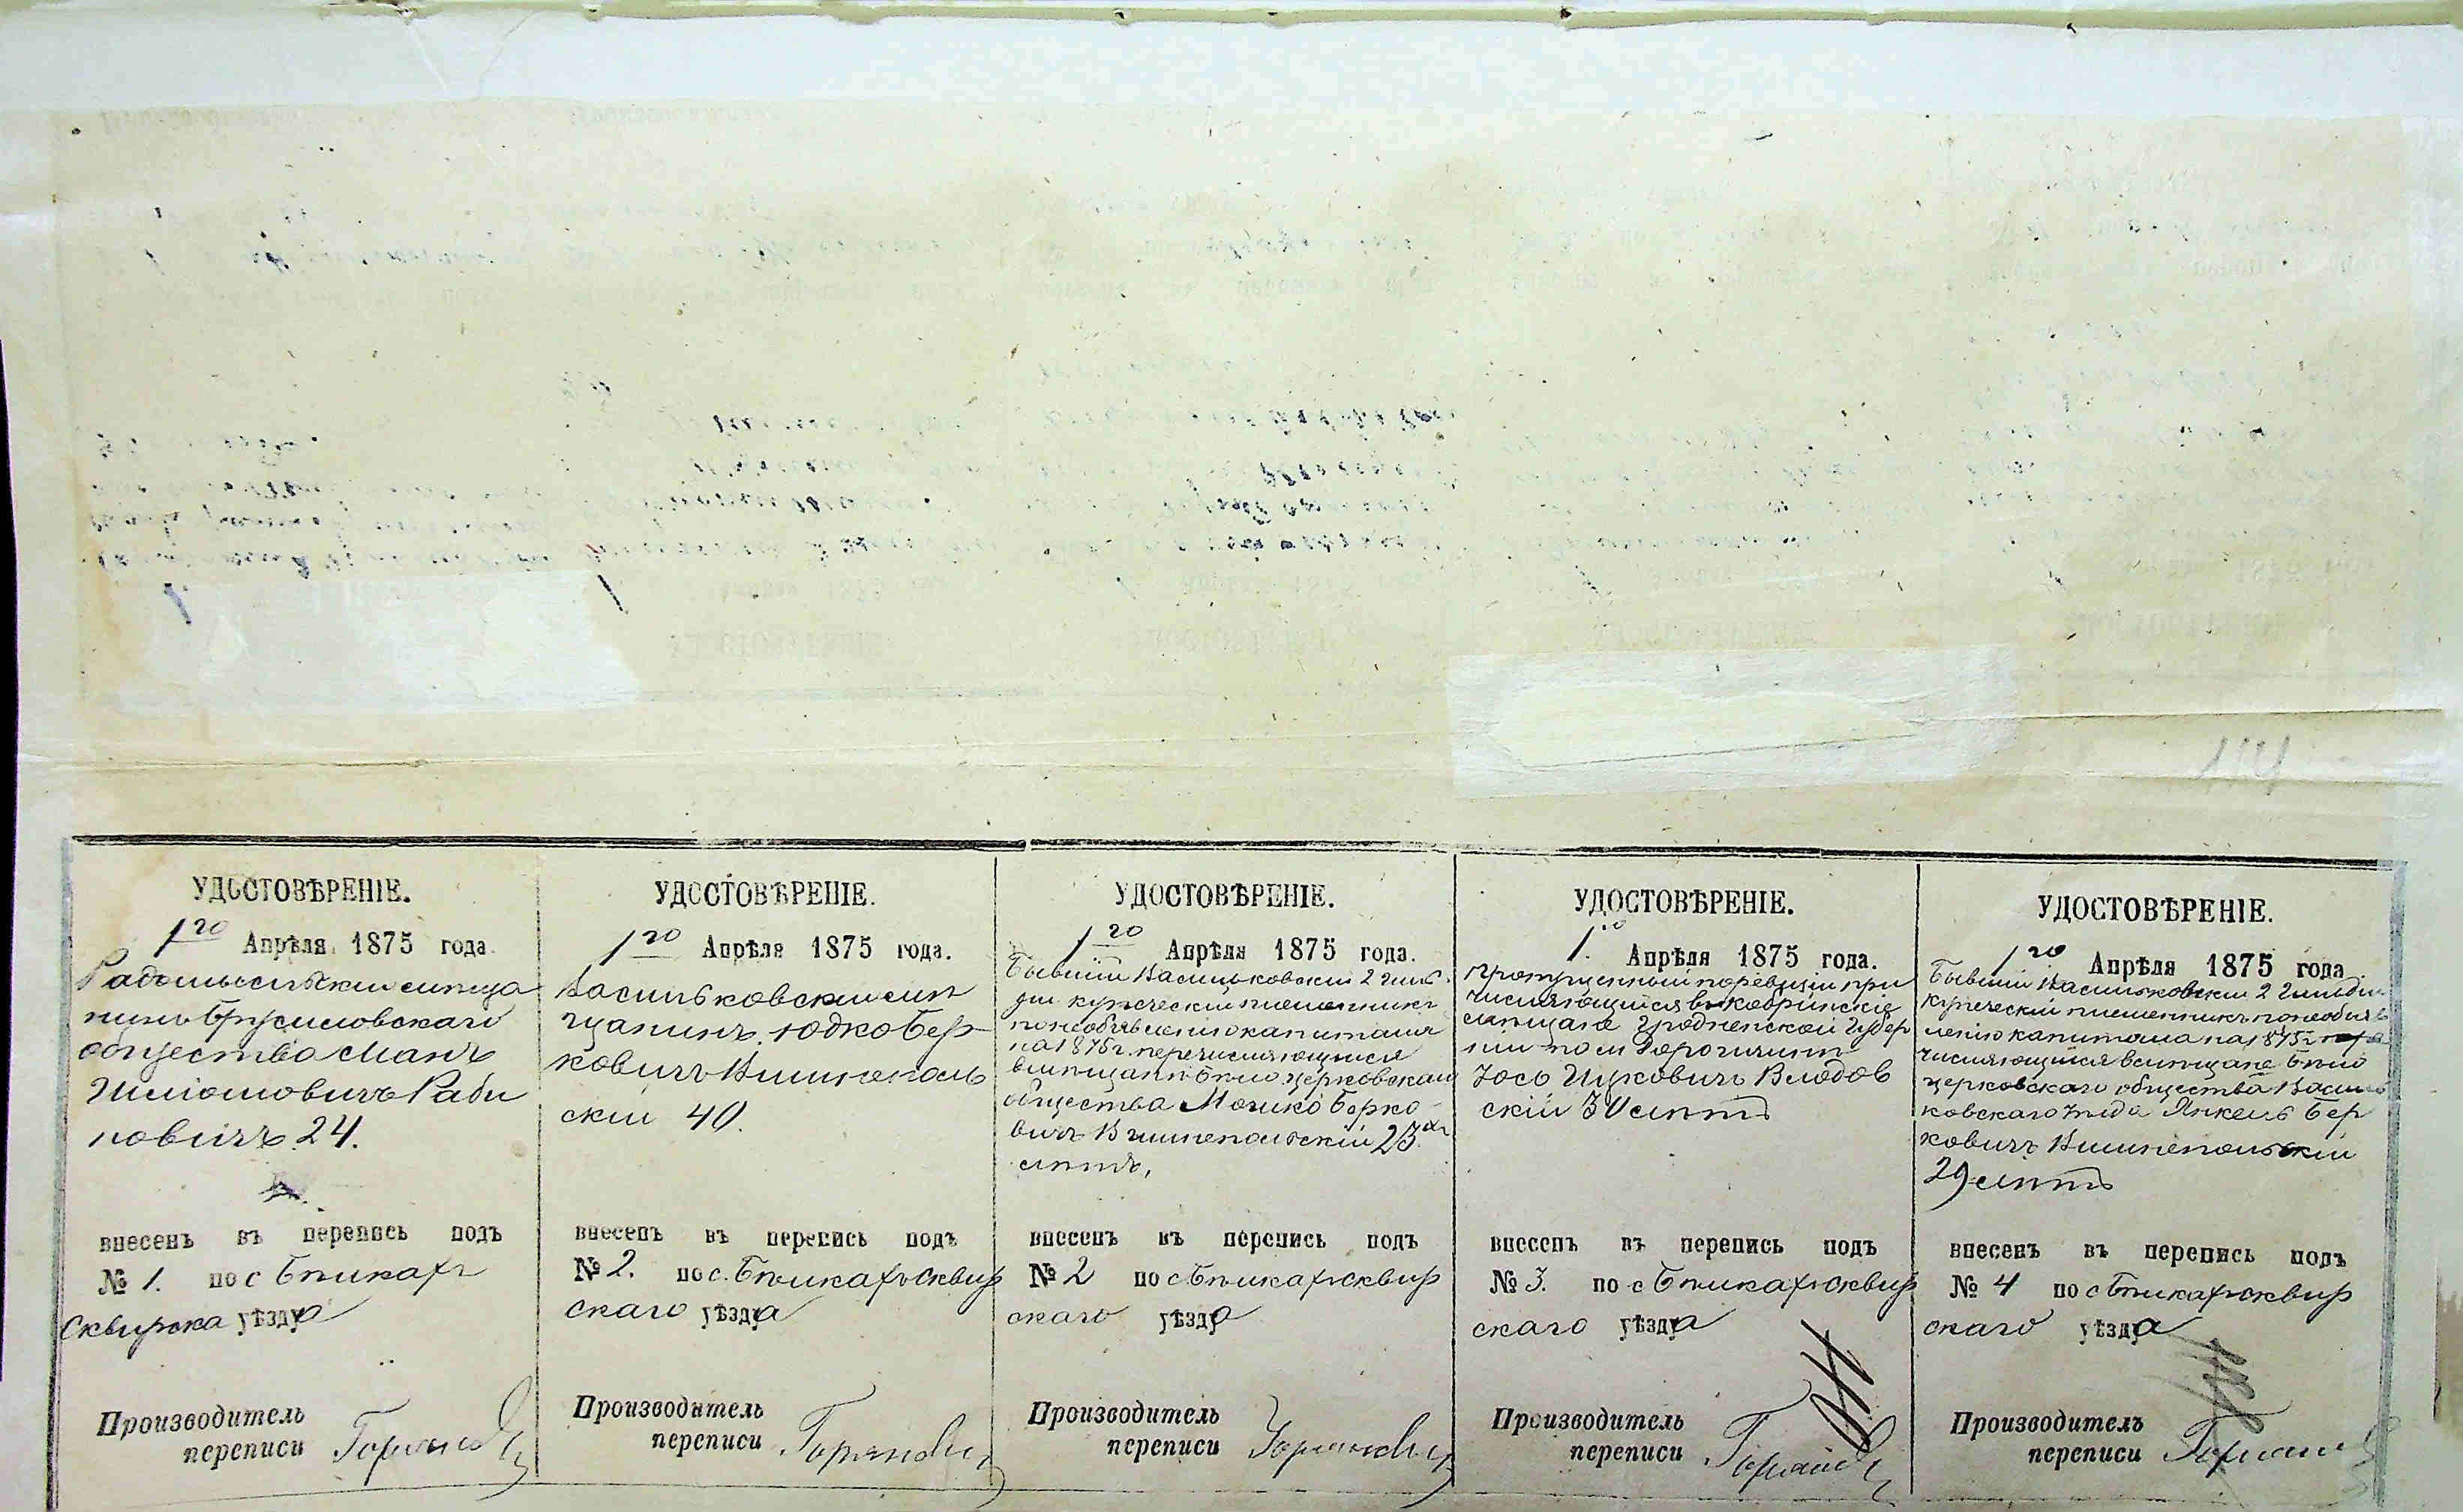 УДОСТОВѢРЕНІЕ.
1го Апрѣля 1875 года.
Радомысльскій мѣща
нинъ Брусиловскаго
общества Манъ
Шліомовичъ Раби
новичъ 24.
внесенъ въ перепись подъ
№ 1. по с Бѣлкахъ
Сквирска уѣзда
Производитель
переписи
УДОСТОВѢРЕНІЕ.
1го Апрѣля 1875 года.
Васильковскій мѣ
щанинъ Юдко Бер
ковичъ Вишнеполь
скій 40.
внесенъ въ перепись подъ
№ 2. по с. Бѣлкахъ Сквир
скаго уѣзда
Производитель
переписи
УДОСТОВѢРЕНІЕ.
1го Апрѣля 1875 года.
Бывшій Васильковскій 2 гиль
діи купеческій племянникъ
по необъявленію капитала
на 1875 г. перечисляющійся
в мѣщане Бѣлоцерковскаго
общества Мошко Берко
вичъ Вишнепольскій 23х
лѣтъ,
внесенъ въ перепись подъ
№ 2 по с Бѣлкахъ Сквир
скаго уѣзда
Производитель
переписи
УДОСТОВѢРЕНІЕ.
1го Апрѣля 1875 года.
пропущенный по ревизіи при
числяющійся в кобринскіе
мѣщане Гродненской Губер
ніи по м
Іось Ицковичъ Влодов
скій 30 лѣтъ
внесенъ въ перепись подъ
№ 3. по с Бѣлкахъ Сквир
скаго уѣзда
Производитель
переписи
УДОСТОВѢРЕНІЕ.
1го Апрѣля 1875 года.
Бывшій Васильковскій 2 гильдіи
купеческій племянникъ по необъяв
ленію капитала на 1875 г. пере
числяющійся в мѣщане Бѣло
церковскаго общества Василь
ковскаго уѣзда Янкель Бер
ковичъ Вишнепольскій
29 лѣтъ
внесенъ въ перепись подъ
№ 4 по с Бѣлкахъ Сквир
скаго уѣзда
Производитель
переписи